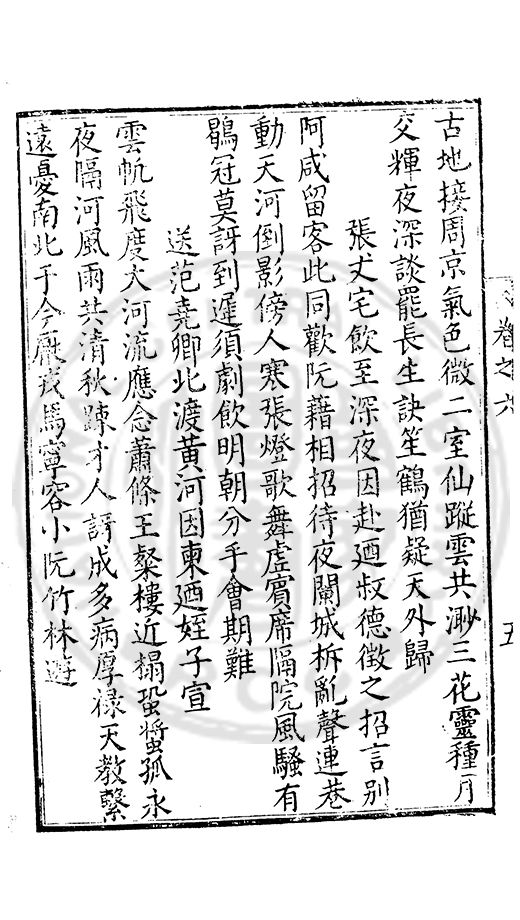 古地接周京氣色微二室仙蹤雲共渺三花靈種月
交輝夜深談罷長生訣笙鶴猶疑天外歸
張丈宅飲至深夜因赴廼叔德徵之招言别
阿咸留客此同歡阮藉相招待夜闌城柝亂聲連巷
動天河倒影傍人寒張燈歌舞虛賓席隔院風騷有
鶡冠莫訝到遲須劇飲明朝分手會期難
送范堯卿北渡黄河因柬廼姪子宣
雲帆飛度大河流應念蕭條王粲樓近榻蛩螿孤永
夜隔河風雨共清秋踈才人訝成多病厚禄天教繫
遠憂南北于今厭戎馬寧容小阮竹林遊
卷之六
五